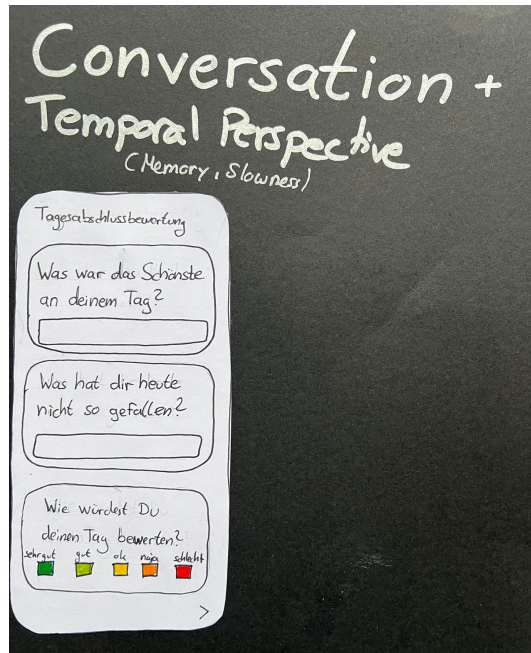 Conversation +
Temporal Perspective
(Memory, Slowness)
Tagesabschlussbewertung
Was war das Schönste
an deinem Tag?
Was hat dir heute
nicht so gefallen?
Wie würdest Du
deinen Tag bewerten?
sehr gut gut ok naja schlecht
>